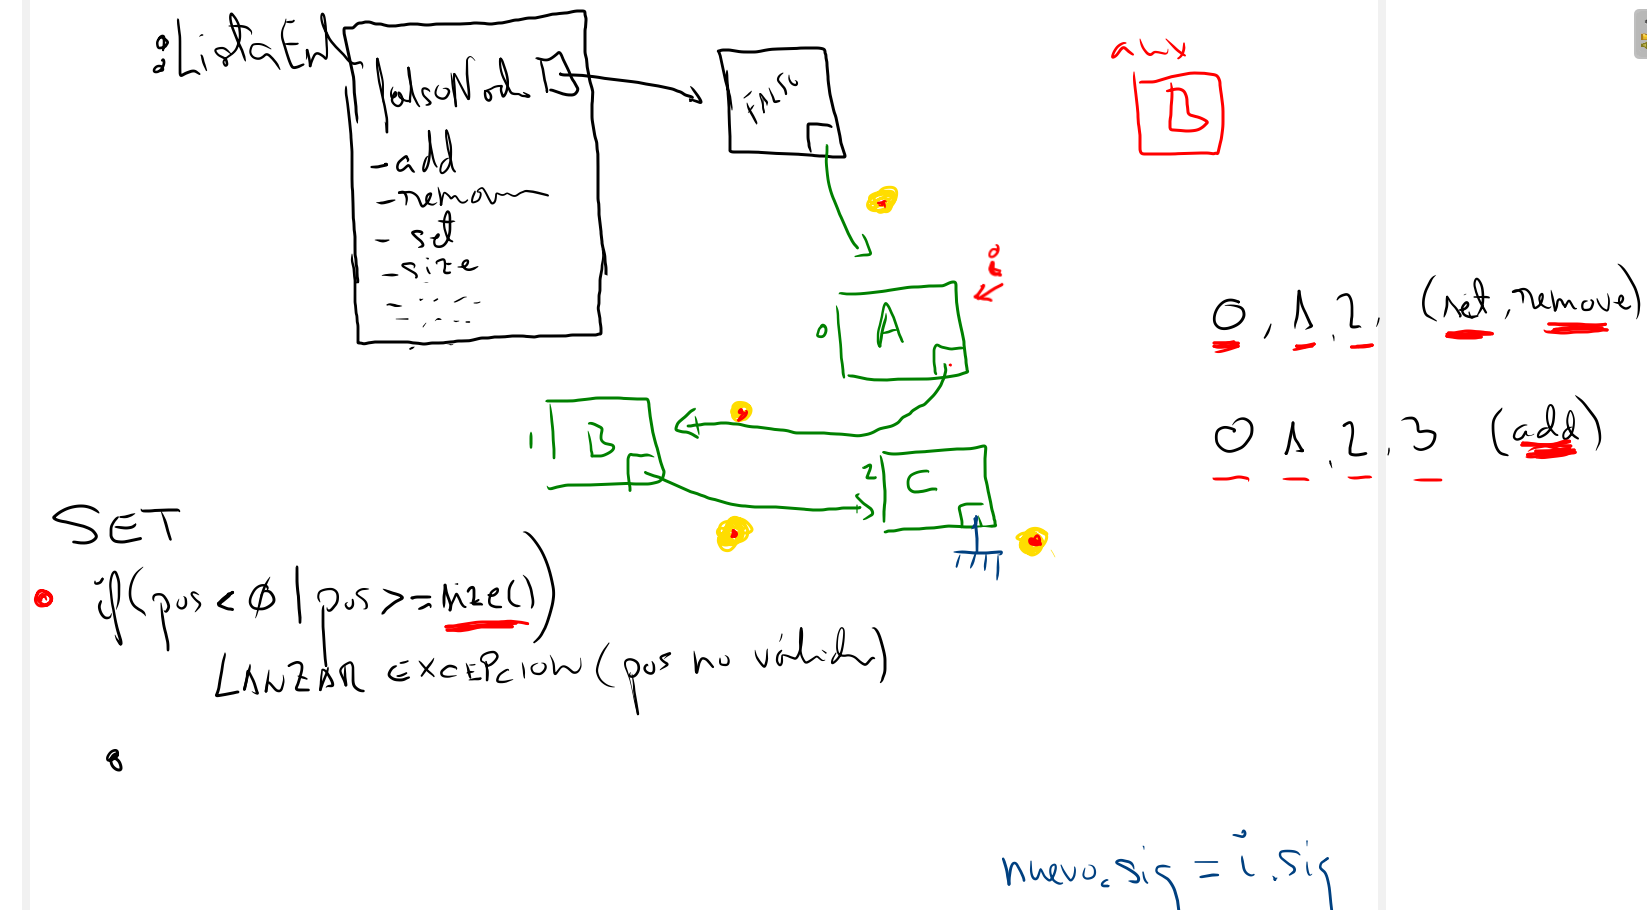 :ListaEnl
falsoNodo
- add
- remove
- set
- size
FALSO
aux
B
i
0
A
1
B
2
C
0, 1, 2, (set, remove)
0 1, 2, 3 (add)
SET
if(pos < 0 | pos >= size())
LANZAR EXCEPCION (pos no válida)
nuevo.sig = i.sig